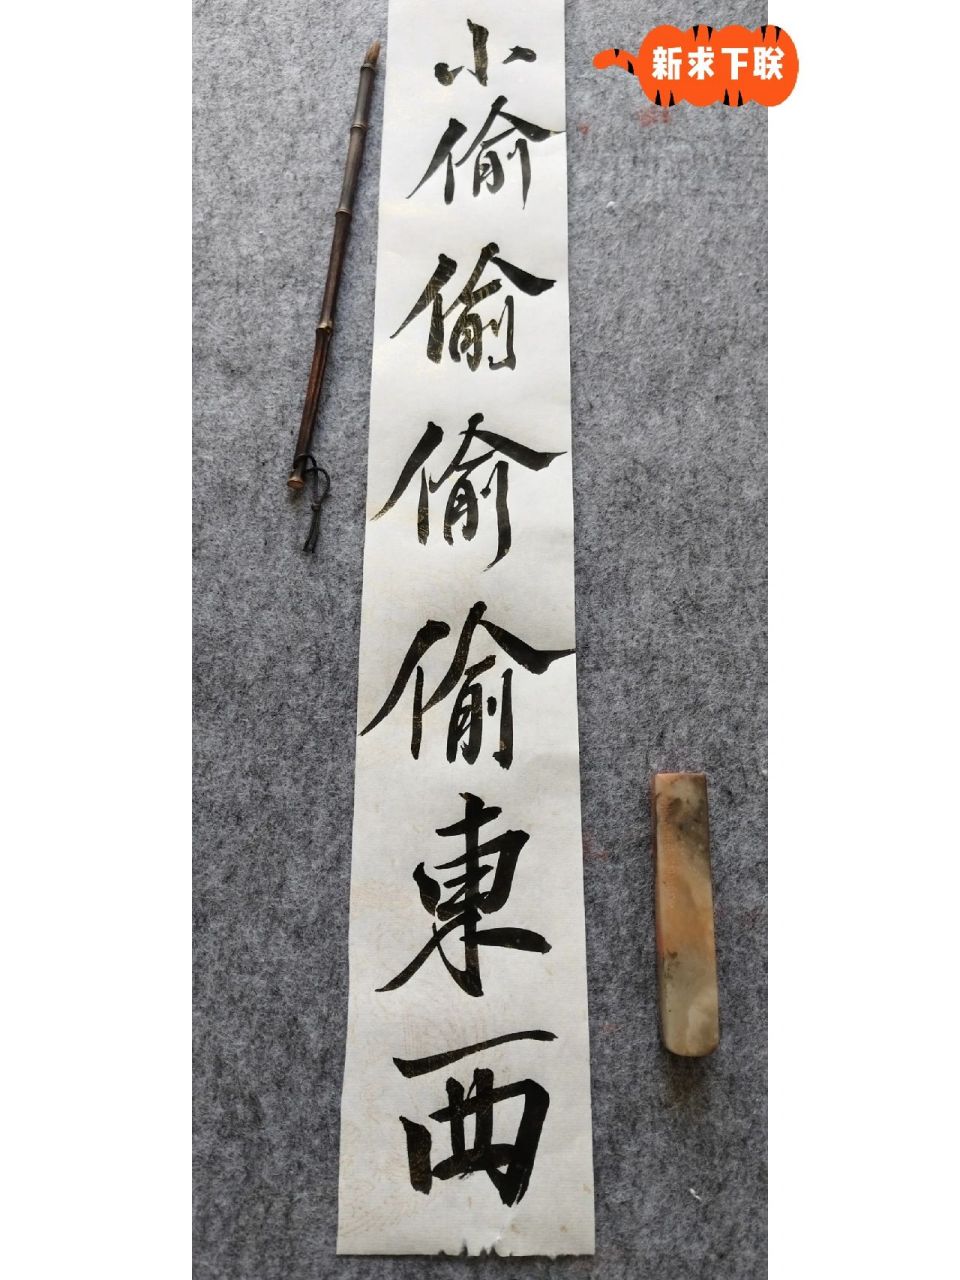 新求下联
小偷偷偷偷東西